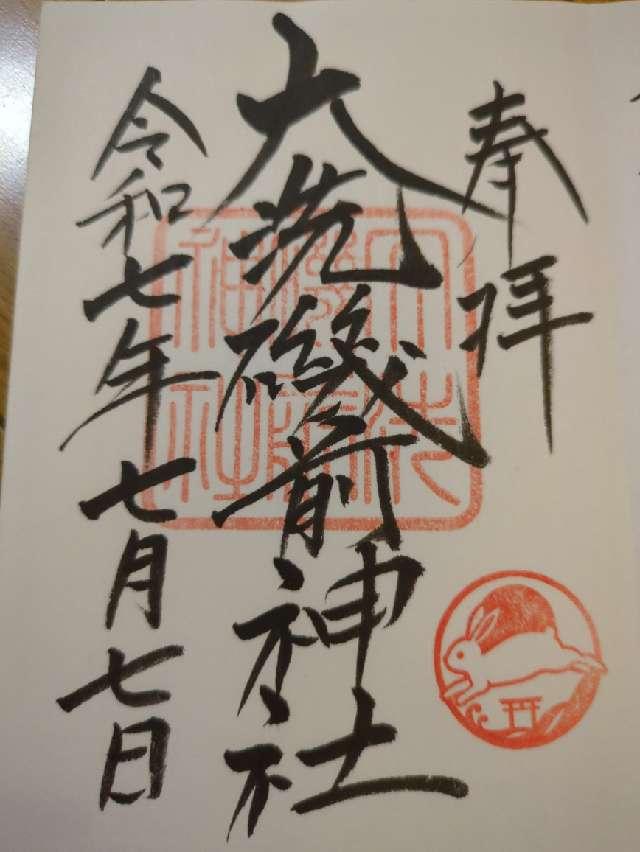 奉拝
大洗磯前神社
令和七年七月七日
大洗
磯前
神社